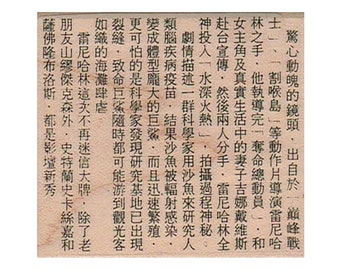 驚心動魄的鏡頭﹐出自於「巔峰戰
士」﹑「割喉島」等動作片導演雷尼哈
林之手﹐他執導完「奪命總動員」﹐和
女主角及真實生活中的妻子吉娜戴維斯
赴台宣傳﹐然後兩人分手﹐雷尼哈林全
神投入「水深火熱」﹐拍攝過程神秘﹒
劇情描述一群科學家用沙魚來研究人
類腦疾病疫苗﹐結果沙魚被輻射感染﹐
變成體型龐大的巨鯊﹐而且迅速繁殖﹐
更可怕的是科學家發現研究基地已出現
裂縫﹐致命巨鯊隨時都可能游到觀光客
如織的海灘肆虐﹒
雷尼哈林這次不再迷信大牌﹐除了老
朋友山繆傑克森外﹐史特蘭史卡絲嘉和
薩佛隆布洛斯﹐都是影壇新秀